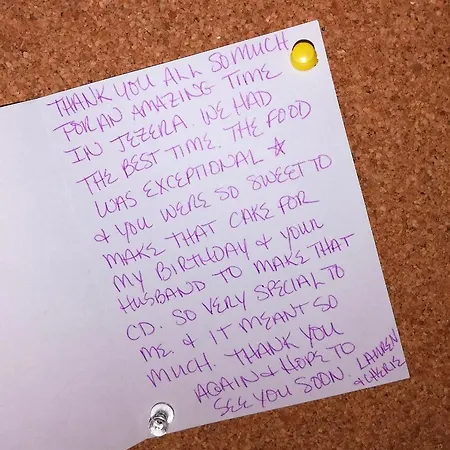 THANK YOU ALL SO MUCH
FOR AN AMAZING TIME
IN JEZERA. WE HAD
THE BEST TIME. THE FOOD
WAS EXCEPTIONAL ☆
& YOU WERE SO SWEET TO
MAKE THAT CAKE FOR
MY BIRTHDAY & YOUR
HUSBAND TO MAKE THAT
CD. SO VERY SPECIAL TO
ME. & IT MEANT SO
MUCH. THANK YOU
AGAIN & HOPE TO
SEE YOU SOON. LAUREN
& CHERIE